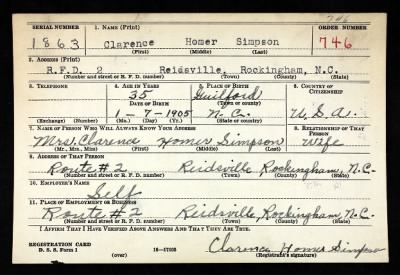 746
SERIAL NUMBER 1. NAME (Print) ORDER NUMBER
1863 Clarence Homer Simpson 746
(First) (Middle) (Last)
2. ADDRESS (Print)
R.F.D. 2 Reidsville, Rockingham, N.C.
(Number and street or R. F. D. number) (Town) (County) (State)
3. TELEPHONE 4. AGE IN YEARS 5. PLACE OF BIRTH 6. COUNTRY OF CITIZENSHIP
35 Guilford
DATE OF BIRTH (Town or county)
1-7-1905 N.C. U.S.A.
(Exchange) (Number) (Mo.) (Day) (Yr.) (State or country)
7. NAME OF PERSON WHO WILL ALWAYS KNOW YOUR ADDRESS 8. RELATIONSHIP OF THAT PERSON
Mrs. Clarence Homer Simpson Wife
(Mr., Mrs., Miss) (First) (Middle) (Last)
9. ADDRESS OF THAT PERSON
Route #2 Reidsville Rockingham, N.C.
(Number and street or R. F. D. number) (Town) (County) (State)
10. EMPLOYER'S NAME
Self
11. PLACE OF EMPLOYMENT OR BUSINESS
Route #2 Reidsville Rockingham, N.C.
(Number and street or R. F. D. number) (Town) (County) (State)
I AFFIRM THAT I HAVE VERIFIED ABOVE ANSWERS AND THAT THEY ARE TRUE.
REGISTRATION CARD
D. S. S. Form 1 16-17105 Clarence Homer Simpson
(over) (Registrant's signature)